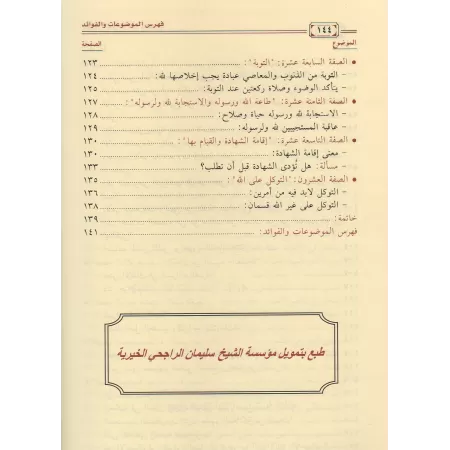 فهرس الموضوعات والفوائد
١٤٤
الموضوع الصفحة
• الصفة السابعة عشرة: "التوبة": ١٢٣
- التوبة من الذنوب والمعاصي عبادة يجب إخلاصها لله: ١٢٤
- يتأكد الوضوء وصلاة ركعتين عند التوبة: ١٢٥
• الصفة الثامنة عشرة: "طاعة الله ورسوله والاستجابة لله ولرسوله": ١٢٧
- الاستجابة لله ورسوله حياة وصلاح: ١٢٨
- عاقبة المستجيبين لله ولرسوله: ١٢٩
• الصفة التاسعة عشرة: "إقامة الشهادة والقيام بها": ١٣٠
- معنى إقامة الشهادة: ١٣٠
- مسألة: هل تُؤدى الشهادة قبل أن تطلب؟ ١٣٣
• الصفة العشرون: "التوكل على الله": ١٣٥
- التوكل لابد فيه من أمرين: ١٣٦
- التوكل على غير الله قسمان: ١٣٨
خاتمة: ١٣٩
فهرس الموضوعات والفوائد: ١٤١
طبع بتمويل مؤسسة الشيخ سليمان الراجحي الخيرية